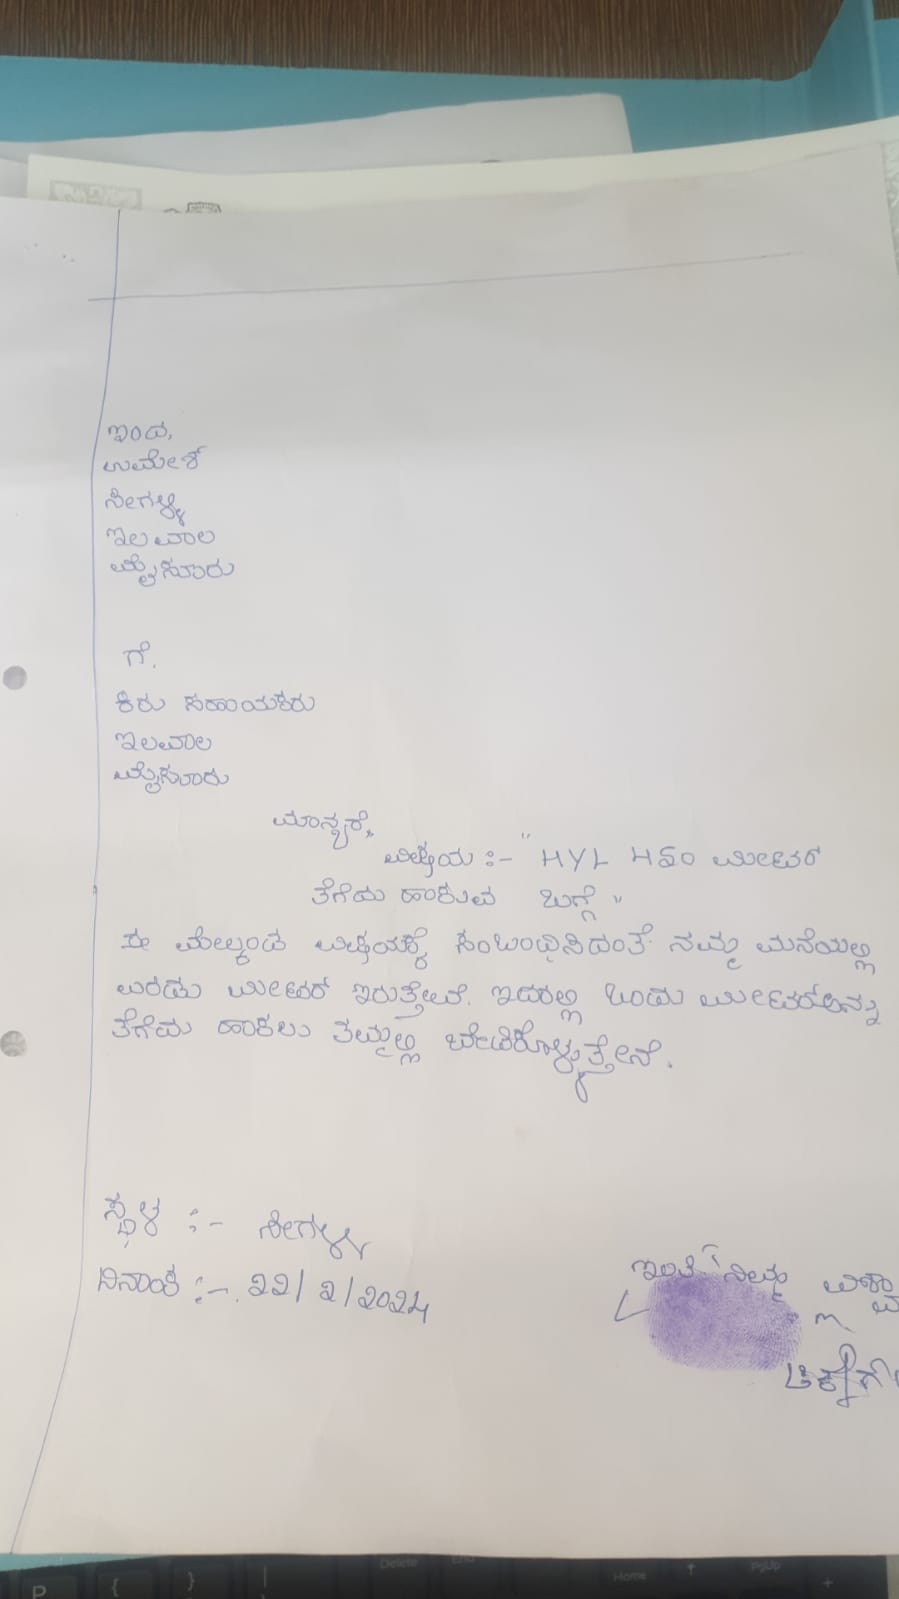 ಇಂದ,
ಉಮೇಶ್
ಸೀಗಳ್ಳಿ
ಇಲವಾಲ
ಮೈಸೂರು
ಗೆ.
ಕಿರು ಸಹಾಯಕರು
ಇಲವಾಲ
ಮೈಸೂರು
ಮಾನ್ಯರೆ,
ವಿಷಯ :- " HYL 450 ಮೀಟರ್
ತೆಗೆದು ಹಾಕುವ ಬಗ್ಗೆ "
ಈ ಮೇಲ್ಕಂಡ ವಿಷಯಕ್ಕೆ ಸಂಬಂಧಿಸಿದಂತೆ ನಮ್ಮ ಮನೆಯಲ್ಲಿ
ಎರಡು ಮೀಟರ್ ಇರುತ್ತೇವೆ. ಇದರಲ್ಲಿ ಒಂದು ಮೀಟರ್ಅನ್ನು
ತೆಗೆದು ಹಾಕಲು ತಮ್ಮಲ್ಲಿ ಬೇಡಿಕೊಳ್ಳುತ್ತೇನೆ.
ಸ್ಥಳ :- ಸೀಗಳ್ಳಿ
ದಿನಾಂಕ :- 22/2/2024
ಇಂತಿ ನಿಮ್ಮ